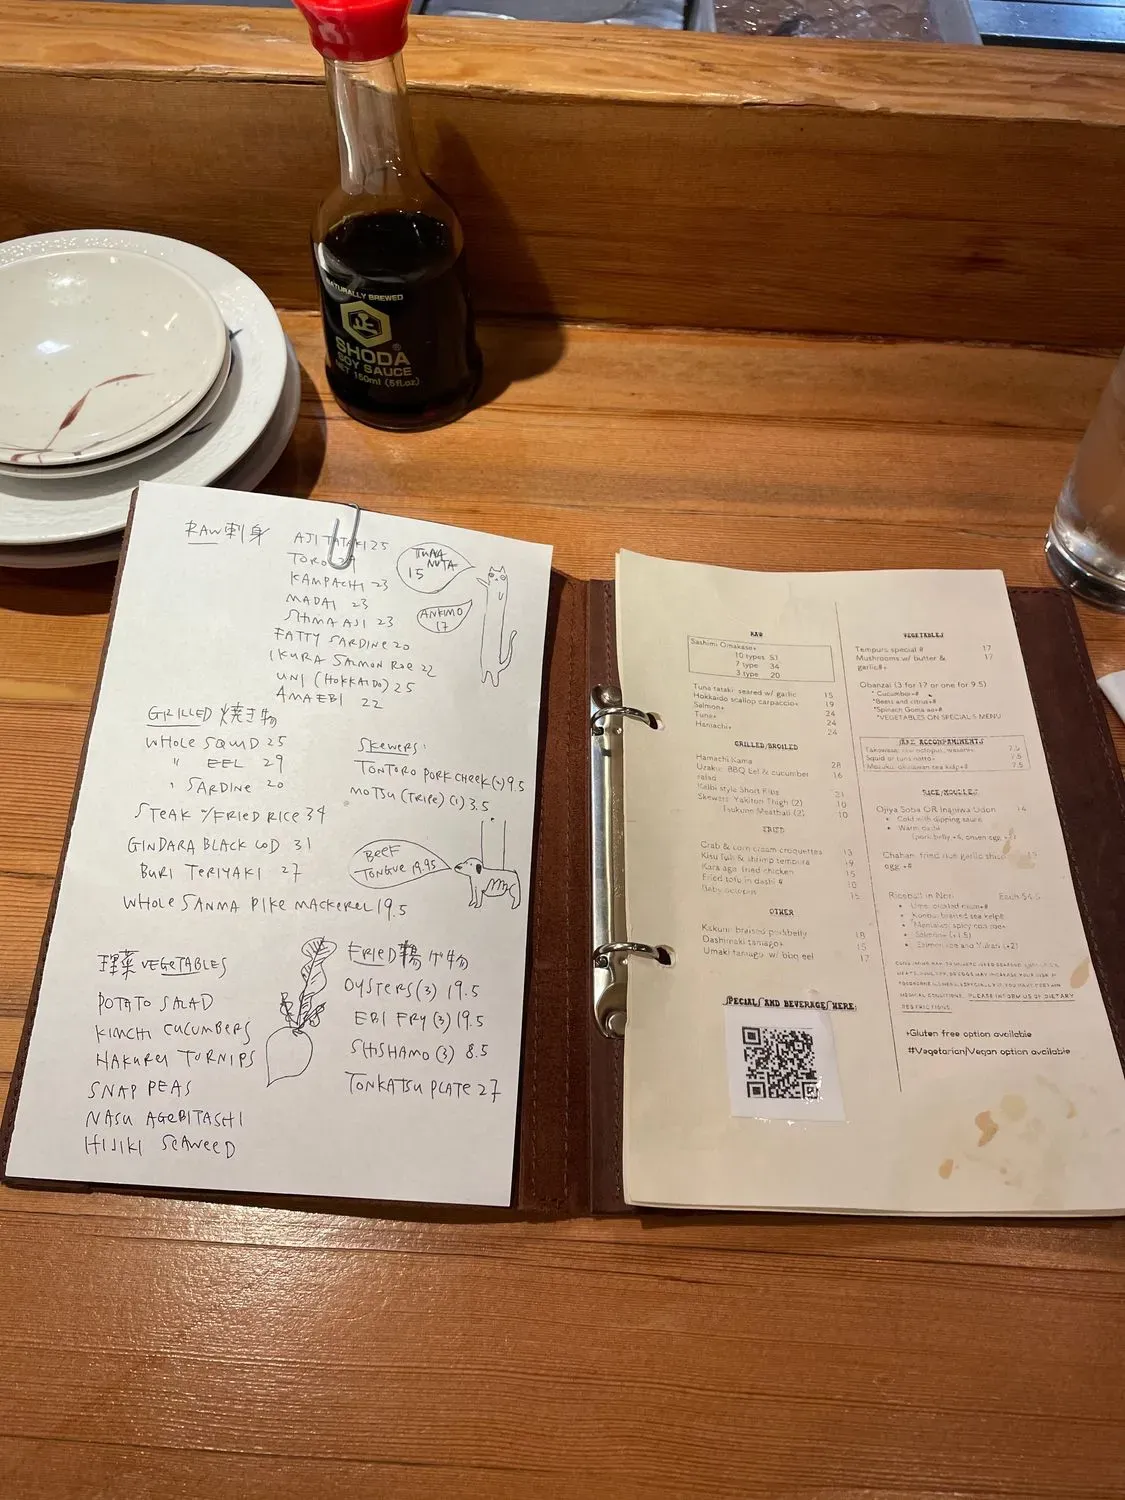 NATURALLY BREWED
正
SHODA®
SOY SAUCE
NET 150ml (5fl.oz)
RAW 刺身
AJI TATAKI 25
TORO
KAMPACHI 23
MADAI 23
SHIMA AJI 23
FATTY SARDINE 20
IKURA SALMON ROE 22
UNI (HOKKAIDO) 25
AMAEBI 22
TUNA
NUTA
15
ANKIMO
17
GRILLED 焼き物
WHOLE SQUID 25
" EEL 29
" SARDINE 20
STEAK W/FRIED RICE 34
GINDARA BLACK COD 31
BURI TERIYAKI 27
WHOLE SANMA PIKE MACKEREL 19.5
SKEWERS:
TONTORO PORK CHEEK (2) 9.5
MOTSU (TRIPE) (1) 3.5
BEEF
TONGUE 19.95
野菜 VEGETABLES
POTATO SALAD
KIMCHI CUCUMBERS
HAKUREI TURNIPS
SNAP PEAS
NASU AGEBITASHI
HIJIKI SEAWEED
FRIED 揚げ物
OYSTERS (3) 19.5
EBI FRY (3) 19.5
SHISHAMO (3) 8.5
TONKATSU PLATE 27
RAW
Sashimi Omakase+
10 types 51
7 type 34
3 type 20
Tuna tataki seared w/ garlic 15
Hokkaido scallop carpaccio+ 19
Salmon+ 24
Tuna+ 24
Hamachi+ 24
GRILLED/BROILED
Hamachi Kama 28
Uzaku: BBQ Eel & cucumber 16
salad
Kalbi style Short Ribs 21
Skewers: Yakitori Thigh (2) 10
Tsukune Meatball (2) 10
FRIED
Crab & corn cream croquettes 13
Kisu fish & shrimp tempura 19
Kara age fried chicken 15
Fried tofu in dashi # 10
Baby octopus 15
OTHER
Kakuni: braised porkbelly 18
Dashimaki tamago+ 15
Umaki tamago w/ bbq eel 17
SPECIALS AND BEVERAGES HERE:
VEGETABLES
Tempura special # 17
Mushrooms w/ butter & 17
garlic#+
Obanzai (3 for 17 or one for 9.5)
* Cucumber+#
*Beets and citrus+#
*Spinach Goma ae+#
*VEGETABLES ON SPECIALS MENU
SAKE ACCOMPANIMENTS
Takowasa: raw octopus, wasabi+ 7.5
Squid or tuna natto+ 7.5
Mozuku: okinawan sea kelp+# 7.5
RICE/NOODLES
Ojiya Soba OR Inaniwa Udon 14
• Cold with dipping sauce
• Warm dashi
(pork belly +4, onsen egg
Chahan: fried rice garlic shiso
egg +#
Riceball in Nori Each $4.5
• Ume: pickled plum+#
• Konbu: braised sea kelp#
• Mentaiko: spicy cod roe+
• Salmon+ (+1.5)
PLEASE INFORM US OF DIETARY
RESTRICTIONS.
+Gluten free option available
#Vegetarian/Vegan option available